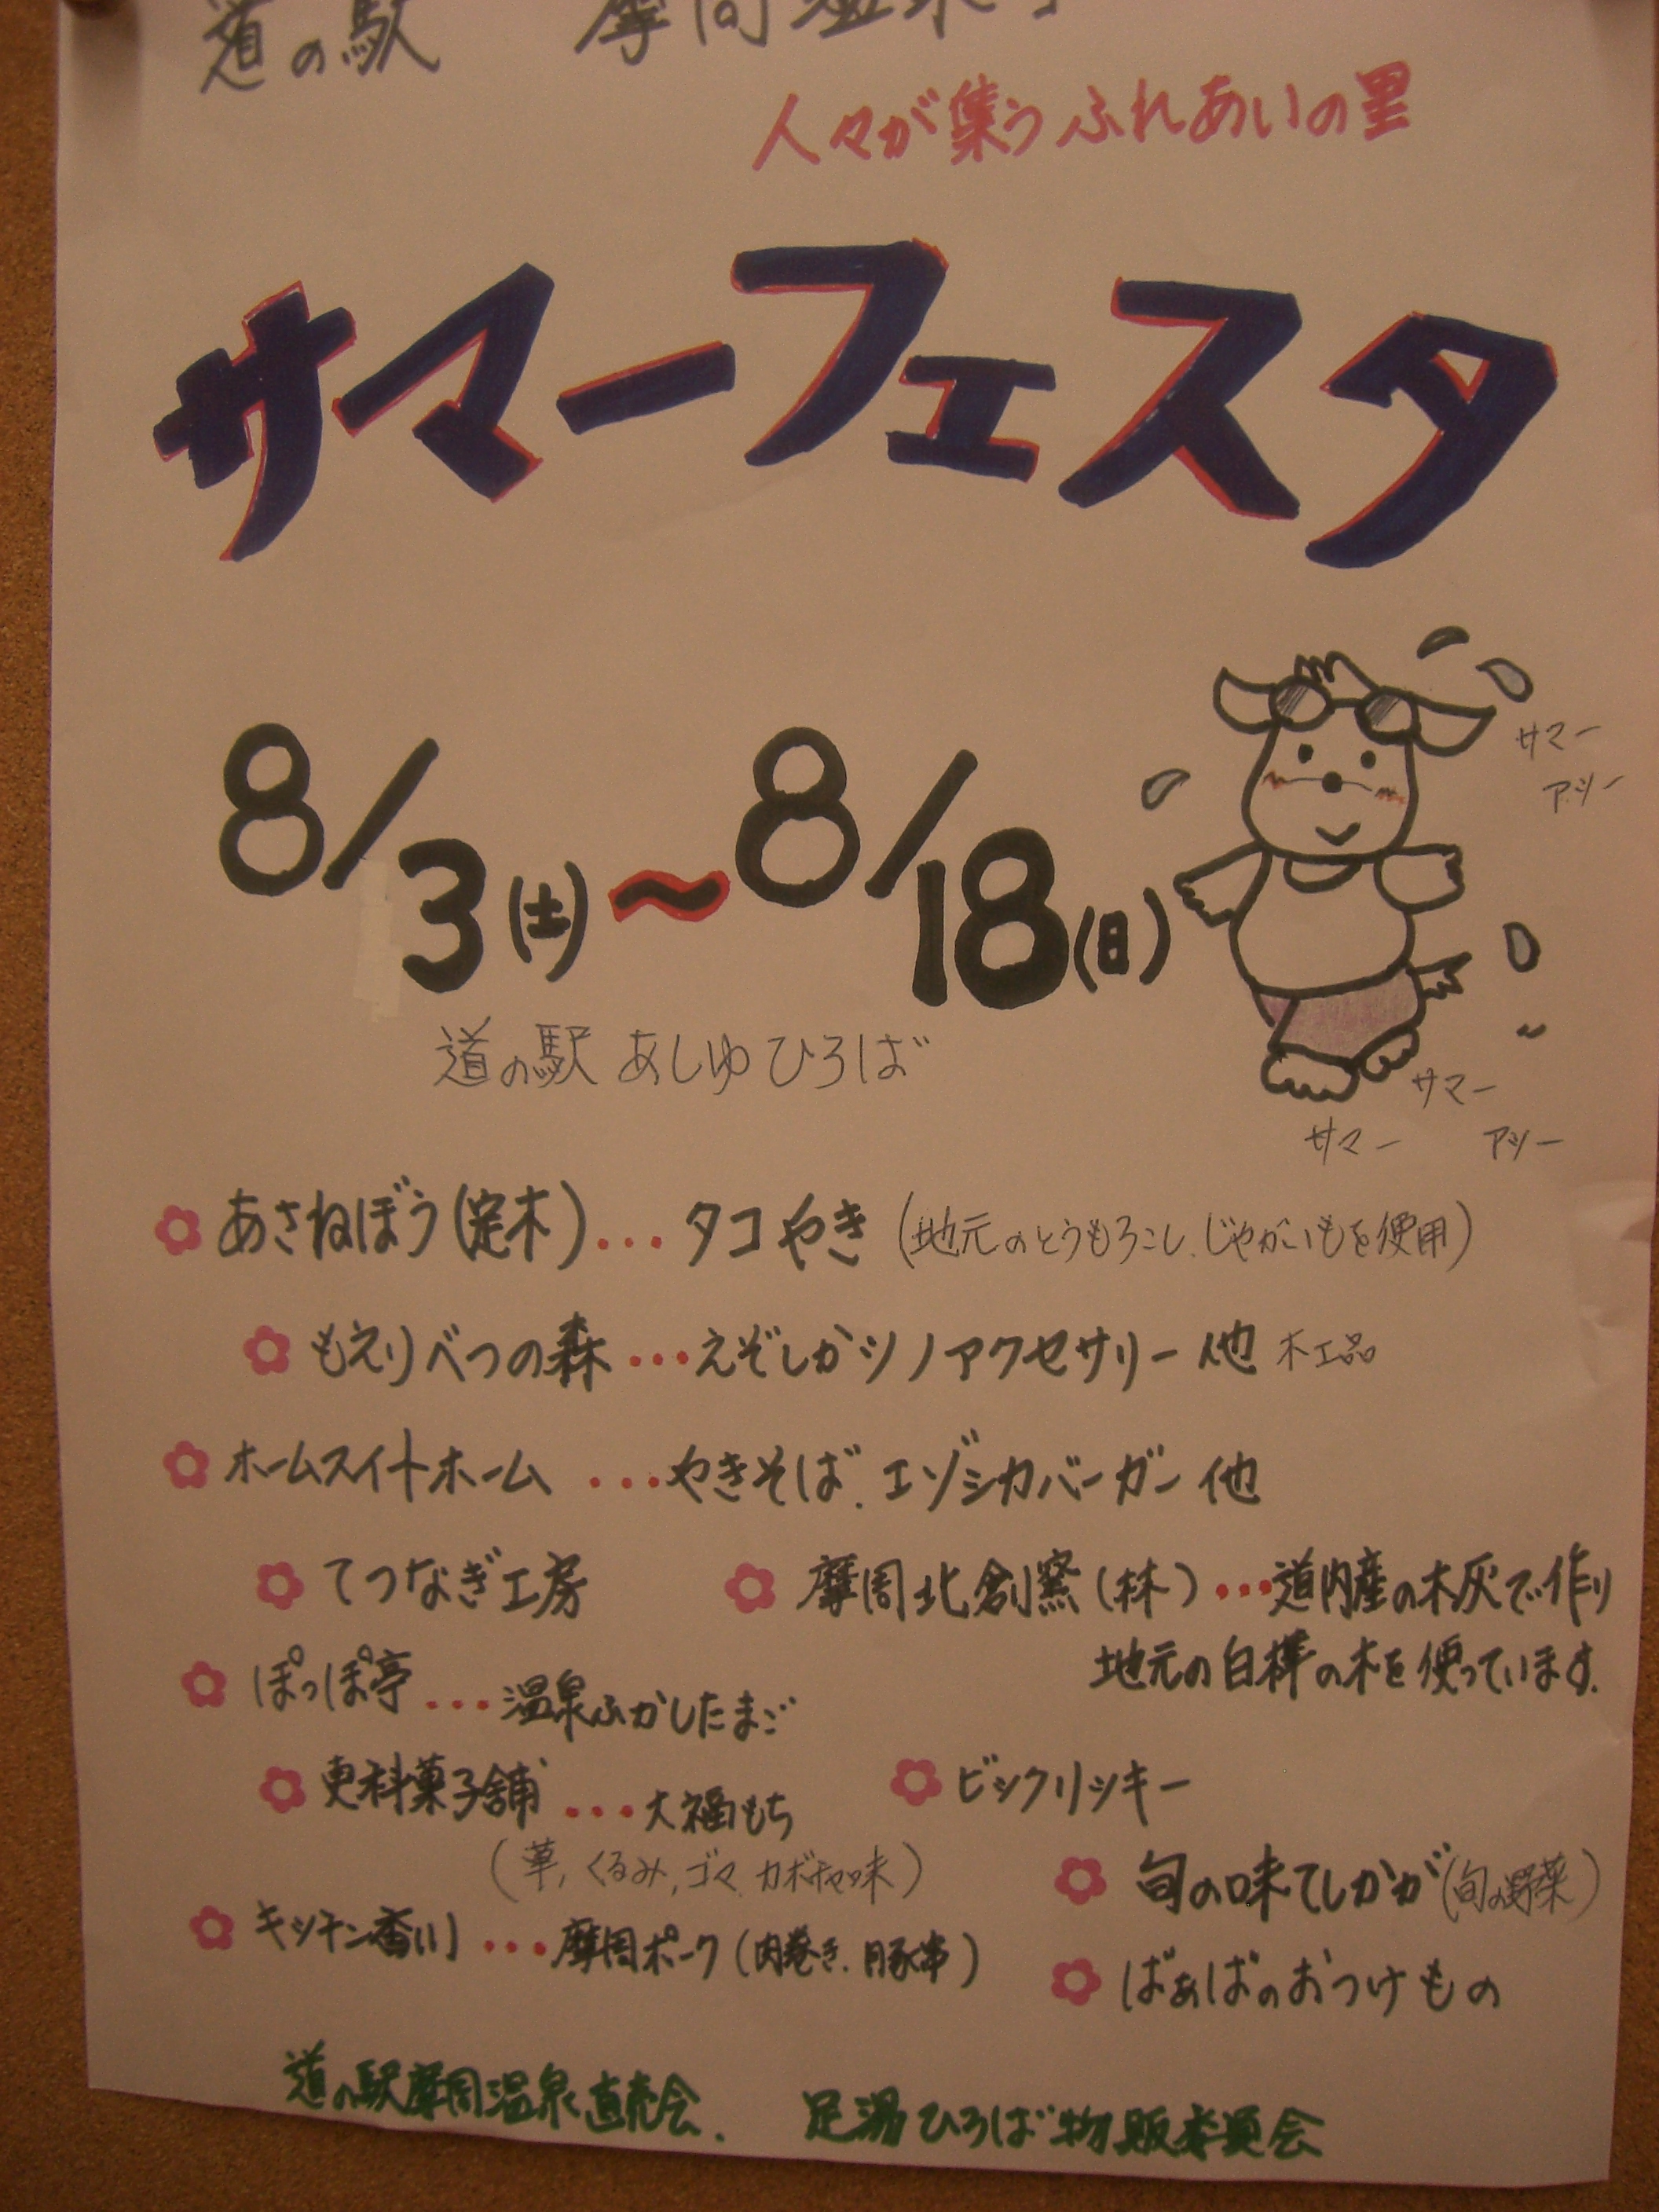 道の駅 摩周温泉
人々が集う ふれあいの里
サマーフェスタ
8/3(土)〜8/18(日)
サマー
アシー
道の駅 あしゆ ひろば
サマー
サマー アシー
あさねぼう(定木)...タコやき(地元のとうもろこし、じゃがいもを使用)
もえりべつの森...えぞしかツノアクセサリー 他 木工品
ホームスイートホーム ...やきそば、エゾシカバーガー 他
てつなぎ工房
摩周北創窯(林)...道内産の木灰で作り
地元の白樺の木を使っています。
ぽっぽ亭...温泉ふかしたまご
更科菓子舗...大福もち
(草、くるみ、ゴマ、カボチャ味)
ビックリッキー
旬の味てしかが(旬の野菜)
キッチン香川...摩周ポーク(肉巻き、豚串)
ばぁばのおつけもの
道の駅摩周温泉直売会. 足湯ひろば物販委員会